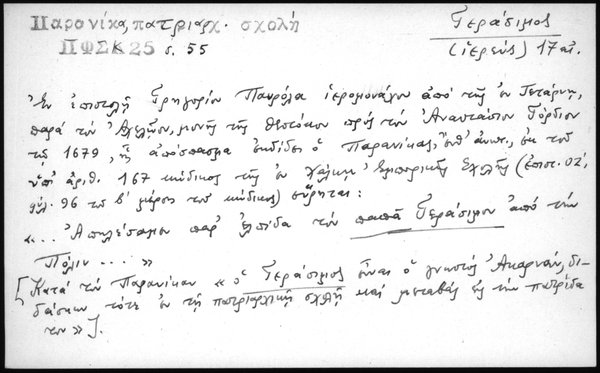 Παρανίκα, πατριαρχ. σχολή
ΠΦΣΚ 25 σ. 55
Γεράσιμος
(ἱερεύς) 17 αἰ.
Ἐν ἐπιστολῇ Γρηγορίου ἱερομονάχου ἀπὸ τῆς ἐν
παρὰ τὸν μονῆς τῆς Θεοτόκου πρὸς τὸν Ἀναστάσιον Γόρδιον
τῷ 1679, ἧς ἀπόσπασμα ἐκδίδει ὁ Παρανίκας, ἐκ τοῦ
ὑπ' ἀριθ. 167 κώδικος τῆς ἐν Χάλκῃ Ἐμπορικῆς Σχολῆς (ἐπιστ. 02,
φύλ. 96 τοῦ β' μέρους τοῦ κώδικος) εὕρηται:
«... παρ' ἐλπίδα τὸν παπᾶ Γεράσιμον ἀπὸ τὴν
Πόλιν .... »
[Κατὰ τὸν Παρανίκαν « ὁ Γεράσιμος εἶναι ὁ γνωστὸς Ἀκαρνάν, δι-
δάσκων τότε ἐν τῇ πατριαρχικῇ σχολῇ καὶ μεταβὰς εἰς τὴν πατρίδα
του »].